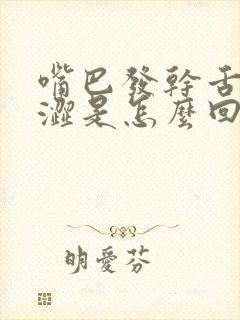 嘴巴發幹舌
澀是怎麼回
明愛芬